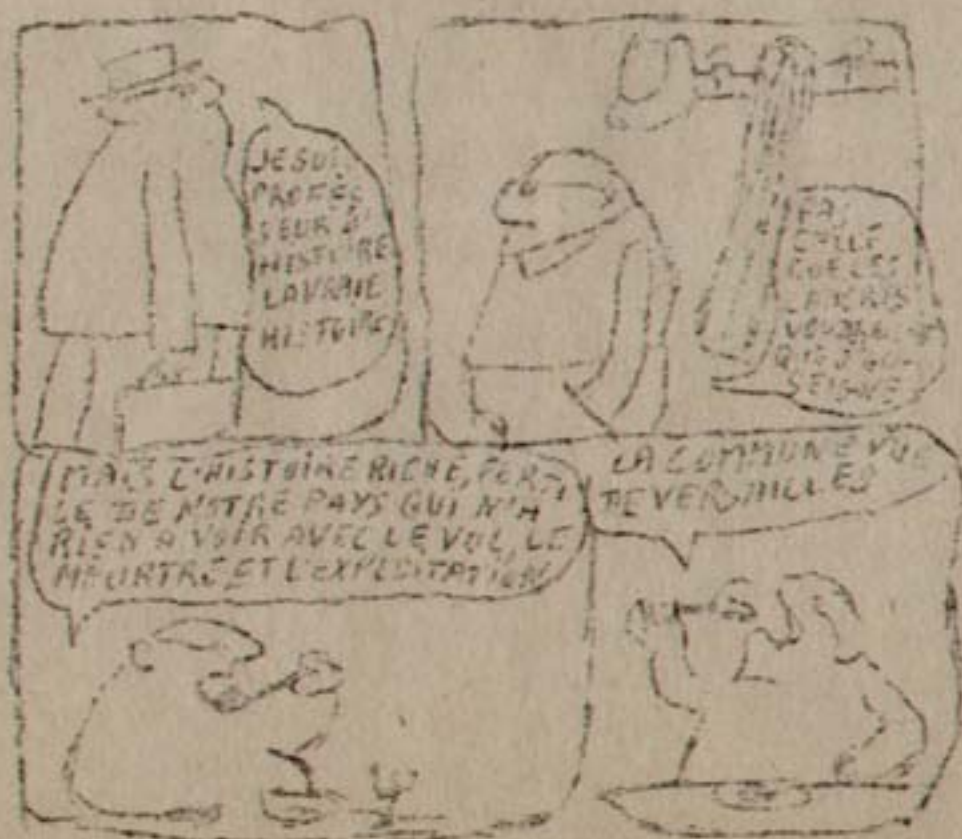 JE SUIS
PROFES
SEUR D'
HISTOIRE
LA VRAIE
HISTOIRE
PAS
CELLE
QUE LES
QUE J'EN
SEIGNE
MAIS L'HISTOIRE RICHE, FERTI
LE DE NOTRE PAYS QUI N'A
RIEN A VOIR AVEC LE VOL, LE
MEURTRE ET L'EXPLOITATION
LA COMMUNE VUE
DE VERSAILLES